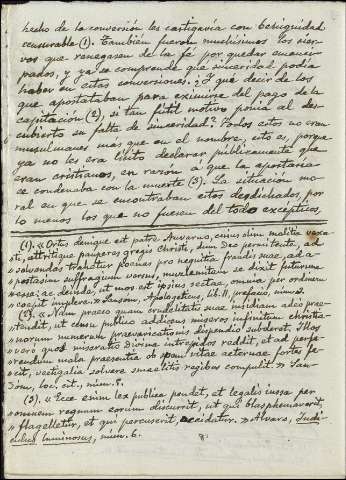 hecho de la conversión les castigaría con benignidad
censurable (1). También fueron muchísimos los sier-
vos que renegasen de la fé por quedar emanci-
pados, y ya se comprende qué sinceridad podía
haber en estas conversiones. ¿Y qué decir de los
que apostataban para eximirse del pago de la
capitación (2), si tan fútil motivo ponía al des-
cubierto su falta de sinceridad? Todos estos no eran
musulmanes más que en el nombre, esto es, porque
ya no les era lícito declarar públicamente que
eran cristianos, en razón a que la apostasía
se condenaba con la muerte (3). La situación mo-
ral en que se encontraban estos desdichados, por
lo menos los que no fuesen del todo excépticos,
(1). «Ortus denique est patre Auvarno, cuius olim malitia vexa-
»ti, attritique pauperos gregis Christi, dum Deo permittente, ad
»solvendas traheretur poenas pro nequitia fraudis suae, ad a-
»postasiam suffragium versus, muzlemitam se dixit futurum
»essa: ac deinde, ut mos est ipsius sectae, omnia per ordinem
»coepit implere.» Sansom, Apologeticus, lib. II, prefacio, núm.
(2). «Nam praeco quam crudelitatis suae invidiam adeo prae-
»tendit, ut censu publico addictos miseros infinitum christia-
»norum numerum praevaricationis dispendio subderet. Hos
»vero quos maiestas divina intrepidos reddit, et ad perfe-
»rendum mala praesentia ob spem vitae aeternae fortes fe-
»cit, vectigalia solvere smaelitis regibus compulit.» San-
som, loc. cit., núm.
(3). «Ecce enim lex publica pendet, et legalis iussa per
»omnem regnum eorum discurrit, ut qui blasphemaverit,
»flagelletur, et qui percusserit, occidatur.» Alvaro, Indi-
culus luminosus, núm. 6.
8.